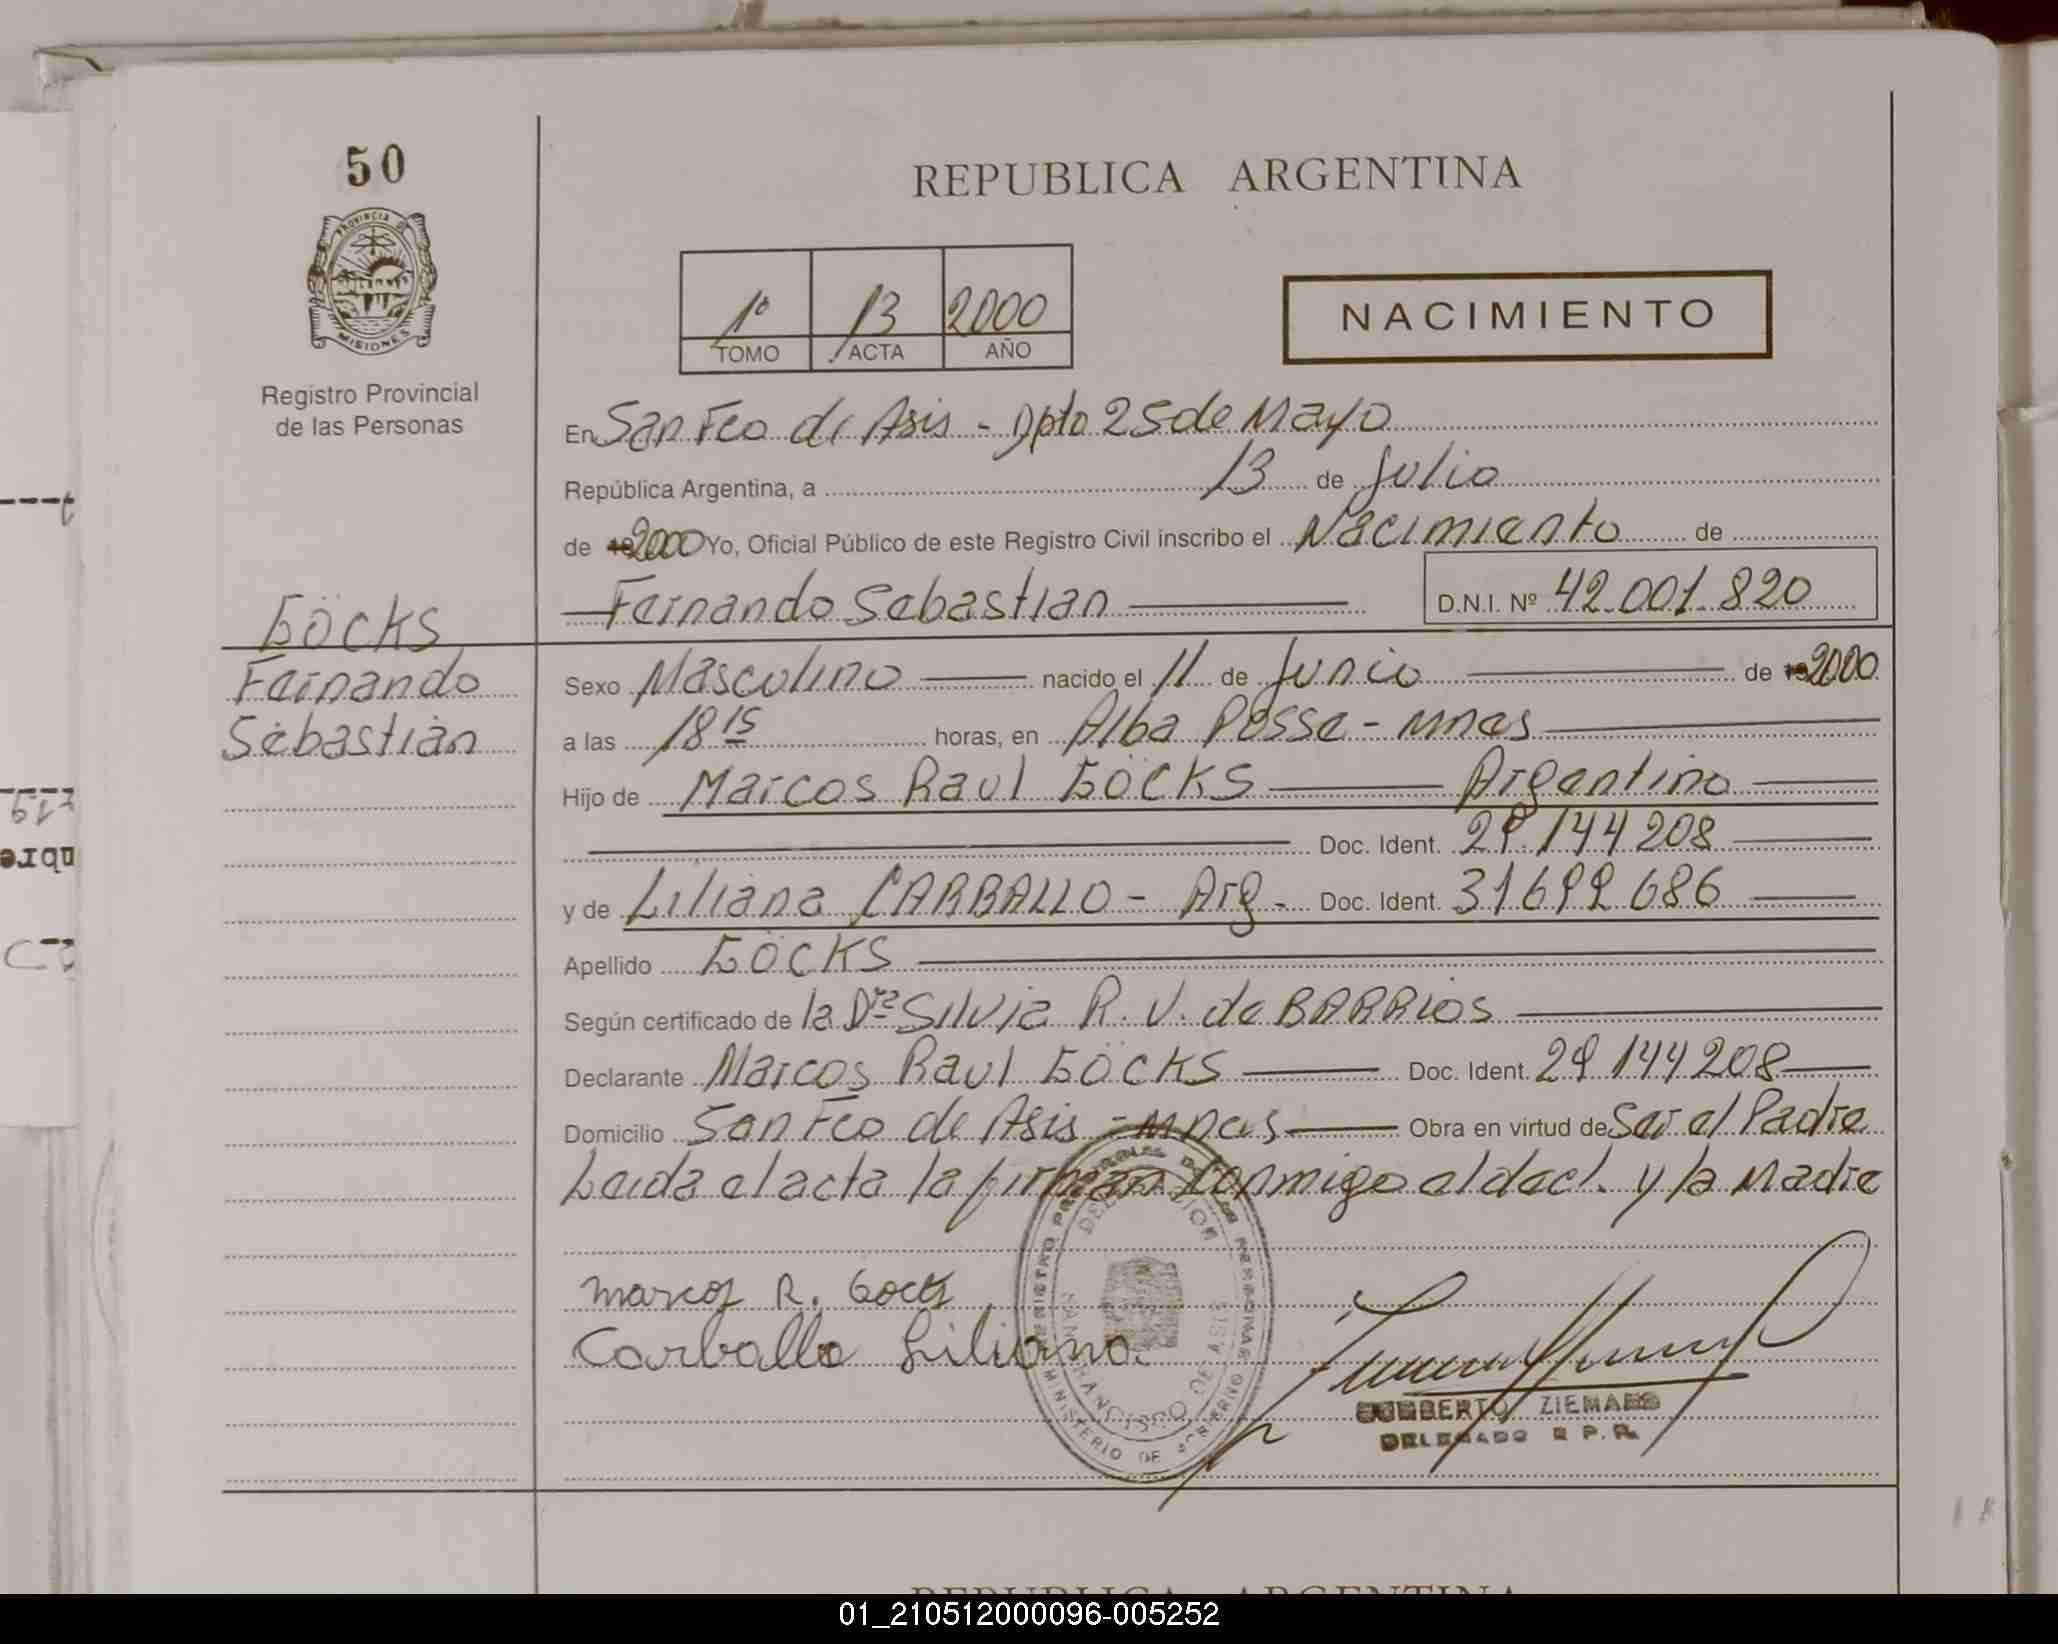 50
PROVINCIA DE
MISIONES
Registro Provincial
de las Personas
REPUBLICA ARGENTINA
1º 13 2000
TOMO ACTA AÑO
NACIMIENTO
En San Fco de Asis - Dpto 25 de Mayo
República Argentina, a 13 de Julio
de 2000 Yo, Oficial Público de este Registro Civil inscribo el Nacimiento de
Fernando Sebastian D.N.I. Nº 42.001.820
GÖCKS
Fernando
Sebastián
Sexo Masculino nacido el 11 de Junio de 2000
a las 18 15 horas, en Alba Posse - Mnes
Hijo de Marcos Raul GÖCKS Argentino
Doc. Ident. 29.144 208
y de Liliana CARBALLO - Arg - Doc. Ident. 31 699 686
Apellido GÖCKS
Según certificado de la Dra Silvia R. V. de BARRIOS
Declarante Marcos Raul GÖCKS Doc. Ident. 29 144 208
Domicilio San Fco de Asis - Mnes Obra en virtud de Ser el Padre
Leida el acta la firman conmigo el decl. y la Madre
REGISTRO PROVINCIAL DE LAS PERSONAS
DELEGACION
SAN FRANCISCO DE ASIS
MINISTERIO DE GOBIERNO
Marcos R. Gocks
Carballo Liliana.
HUMBERTO ZIEMANS
DELEGADO R. P. P.
REPUBLICA ARGENTINA
01_210512000096-005252